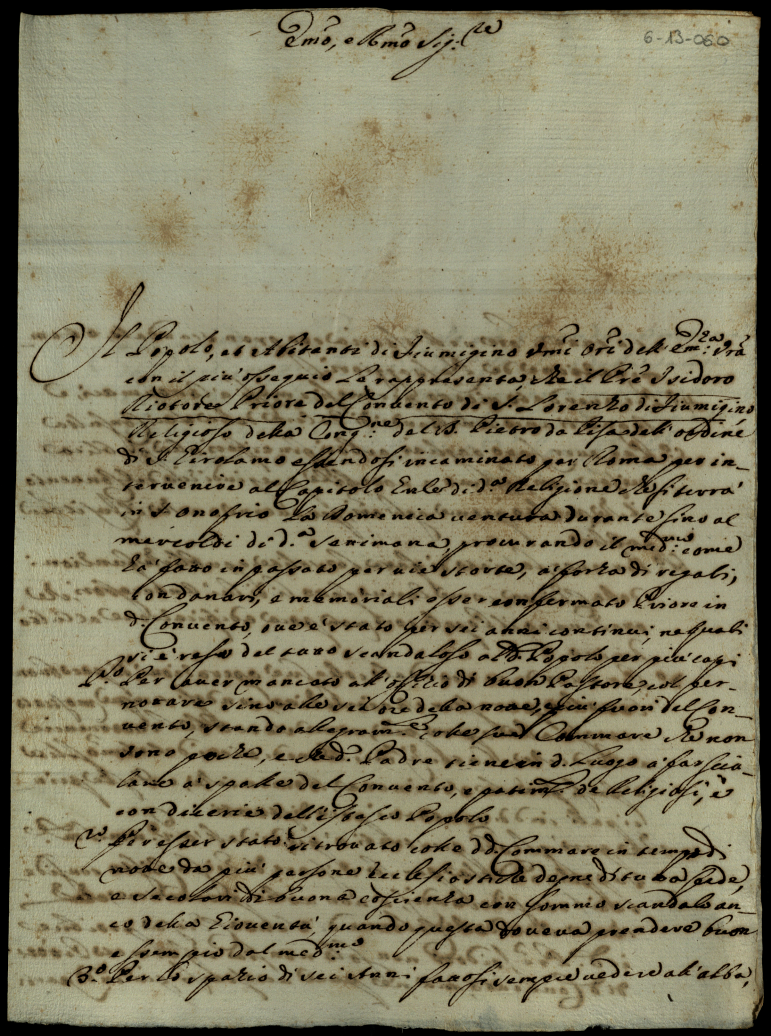 Emo, e Rmo Sig.re
6-13-060
Il Popolo, et Abitanti di Fiumigino Umi Ori dell' Em.za Vra
con il più ossequio Le rappresenta, che il Pre Isidoro
Priore del Convento di S. Lorenzo di Fiumigino
Religioso della Cong.ne del B. Pietro da Pisa dell' ordine
di S. Girolamo essendosi incaminato per Roma per in-
tervenire al Capitolo di d.a Religione che si terrà
in S. Onofrio La Domenica ventura durante sino al
mercoldì di d.a Settimana, procurando il med.mo come
hà fatto in passato per vie storte, à forza di regali,
condanari, e memoriali esser confermato Priore in
d.o Convento, ove è stato per sei anni continui, ne quali
si è reso del tutto scandaloso al d.o Popolo per più capi
P.o Per aver mancato all' offizio di buon Pastore, col per-
nottare sino alle sei ore della notte, e più fuori del Con-
vento, stando allegram.te colle sue Commare che non
sono poche, e che d.o Padre tiene in d.o Luogo à
lare à spalle del Convento, e patim.ti de Religiosi, e
con dicerie dell' istesso Popolo
2.o Per esser stato ritrovato colle dd. Commare in tempo di
notte da più persone Ecclesiastiche degne di tutta fede,
e secolari di buona coscienza con sommo scandalo an-
co della Gioventù, quando questa doveva prendere buon
essempio dal med.mo
3.o Per lo spazio di sei Anni fattosi sempre vedere all' alba,